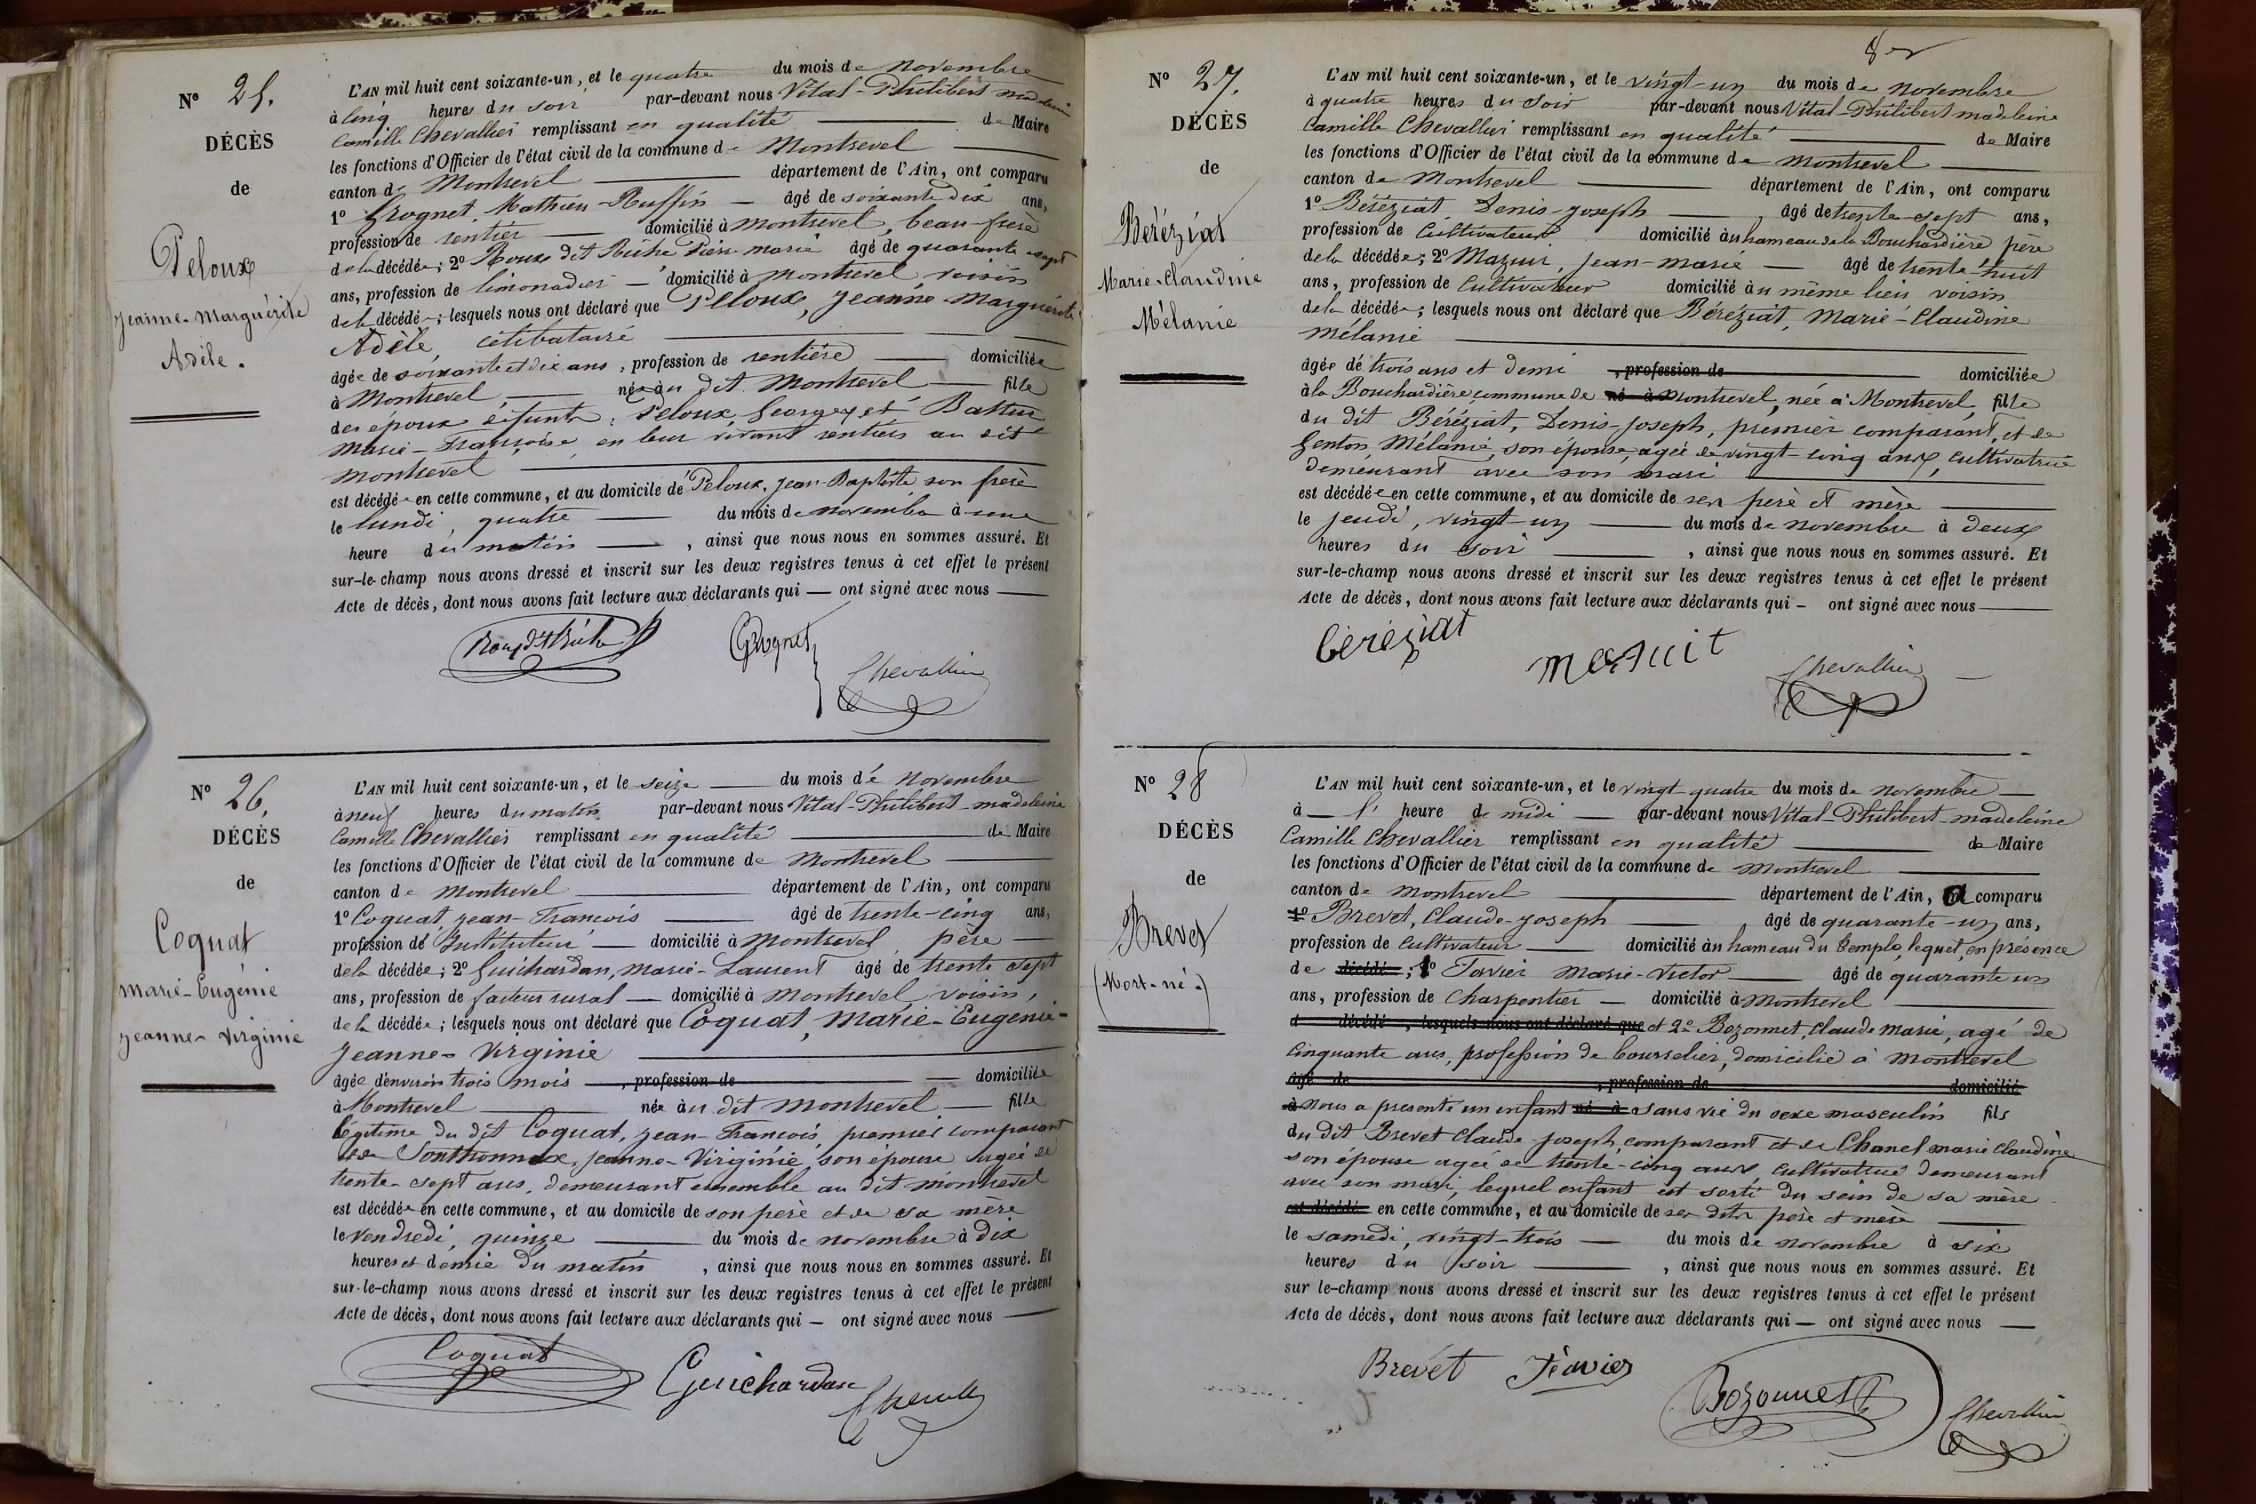 N° 25.
DÉCÈS
de
Peloux
Jeanne-Marguérite
Adèle.
L'AN mil huit cent soixante-un, et le quatre du mois de novembre
à cinq heures du soir par-devant nous Vital-Philibert madeleine
Camille Chevallier remplissant en qualité de Maire
les fonctions d'Officier de l'état civil de la commune de Montrevel
canton de Montrevel département de l'Ain, ont comparu
1° Grognet, Mathieu-Ruffin âgé de soixante dix ans,
profession de rentier domicilié à montrevel, beau-frère
de la décédée; 2° Roux dit Riche Pierre marie âgé de quarante sept
ans, profession de limonadier domicilié à montrevel voisin
de la décédée; lesquels nous ont déclaré que Peloux, Jeanne-Marguérite
Adèle, célibataire
âgée de soixante et dix ans, profession de rentière domiciliée
à Montrevel, née au dit Montrevel fille
des époux défunts: Peloux, Georges et Battur
Marie-Françoise, en leur vivant rentiers au dit
montrevel
est décédée en cette commune, et au domicile de Peloux, Jean-Baptiste, son frère
le lundi, quatre du mois de novembre à une
heure du matin, ainsi que nous nous en sommes assuré. Et
sur-le-champ nous avons dressé et inscrit sur les deux registres tenus à cet effet le présent
Acte de décès, dont nous avons fait lecture aux déclarants qui — ont signé avec nous
Roux dit Riche Grognet
Chevallier
N° 26.
DÉCÈS
de
Coquat
marie-Eugénie
Jeanne-Virginie
L'AN mil huit cent soixante-un, et le seize du mois de novembre
à neuf heures du matin par-devant nous Vital-Philibert-madeleine
Camille Chevallier remplissant en qualité de Maire
les fonctions d'Officier de l'état civil de la commune de Montrevel
canton de montrevel département de l'Ain, ont comparu
1° Coquat, Jean-François âgé de trente-cinq ans,
profession de Instituteur domicilié à Montrevel, père
de la décédée; 2° Guichardan, Marie-Laurent âgé de trente sept
ans, profession de facteur rural domicilié à montrevel voisin,
de la décédée; lesquels nous ont déclaré que Coquat, Marie-Eugénie-
Jeanne-Virginie
âgée d'environ trois mois, profession de domiciliée
à Montrevel née au dit montrevel fille
légitime du dit Coquat, Jean-François, premier comparant
et de Sonthonnax, Jeanne-Virginie, son épouse agée de
trente-sept ans, demeurant ensemble au dit montrevel
est décédée en cette commune, et au domicile de son père et de sa mère
le vendredi, quinze du mois de novembre à dix
heures et demie du matin, ainsi que nous nous en sommes assuré. Et
sur-le-champ nous avons dressé et inscrit sur les deux registres tenus à cet effet le présent
Acte de décès, dont nous avons fait lecture aux déclarants qui — ont signé avec nous
Coquat Guichardan
N° 27.
DÉCÈS
de
Béréziat
Marie-Claudine
Mélanie
L'AN mil huit cent soixante-un, et le vingt-un du mois de novembre
à quatre heures du soir par-devant nous Vital-Philibert madeleine
Camille Chevallier remplissant en qualité de Maire
les fonctions d'Officier de l'état civil de la commune de montrevel
canton de Montrevel département de l'Ain, ont comparu
1° Béréziat Denis-Joseph âgé de trente-sept ans,
profession de Cultivateur domicilié au hameau de la Bouchardière père
de la décédée; 2° Mazuir, Jean-marie âgé de trente-huit
ans, profession de Cultivateur domicilié au même lieu voisin
de la décédée; lesquels nous ont déclaré que Béréziat, Marie-Claudine
mélanie
âgée de trois ans et demi, profession de domiciliée
à la Bouchardière commune de né à montrevel, née à Montrevel, fille
du dit Béréziat, Denis-Joseph, premier comparant, et de
Genton, Mélanie, son épouse, agée de vingt-cinq ans, cultivatrice
demeurant avec son mari
est décédée en cette commune, et au domicile de ses père et mère
le jeudi, vingt-un du mois de novembre à deux
heures du soir, ainsi que nous nous en sommes assuré. Et
sur-le-champ nous avons dressé et inscrit sur les deux registres tenus à cet effet le présent
Acte de décès, dont nous avons fait lecture aux déclarants qui — ont signé avec nous
béréziat
mazuit
Chevallier
N° 28
DÉCÈS
de
Brevet
(Mort-né.)
L'AN mil huit cent soixante-un, et le vingt quatre du mois de novembre
à l' heure de midi par-devant nous Vital-Philibert-madeleine
Camille Chevallier remplissant en qualité de Maire
les fonctions d'Officier de l'état civil de la commune de montrevel
canton de montrevel département de l'Ain, a comparu
1° Brevet, Claude-Joseph âgé de quarante-un ans,
profession de Cultivateur domicilié au hameau du temple, lequel, en présence
de décédé; 1° Favier Marie-Victor âgé de quarante un
ans, profession de Charpentier domicilié à montrevel
d décédé, lesquels nous ont déclaré que et 2° Bozonnet, Claude marie, agé de
cinquante ans, profession de bourrelier, domicilié à montrevel
âgé de, profession de domicilié
à nous a presenté un enfant né à sans vie du sexe masculin fils
du dit Brevet Claude-Joseph, comparant et de Chanel marie Claudine
son épouse agée de trente-cinq ans, cultivatrice demeurant
avec son mari, lequel enfant est sorti du sein de sa mère
est décédé en cette commune, et au domicile de ses dits père et mère
le samedi, vingt-trois du mois de novembre à six
heures du soir, ainsi que nous nous en sommes assuré. Et
sur le-champ nous avons dressé et inscrit sur les deux registres tenus à cet effet le présent
Acte de décès, dont nous avons fait lecture aux déclarants qui — ont signé avec nous
Brevet Favier
Bozonnet Chevallier